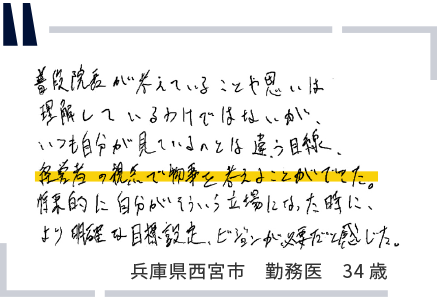 普段院長が考えていることや思いは
理解しているわけではないが、
いつも自分が見ているのとは違う目線、
経営者の視点で物事を考えることができた。
将来的に自分がそういう立場になった時に、
より明確な目標設定、ビジョンが必要だと感じた。
兵庫県西宮市　勤務医　34歳